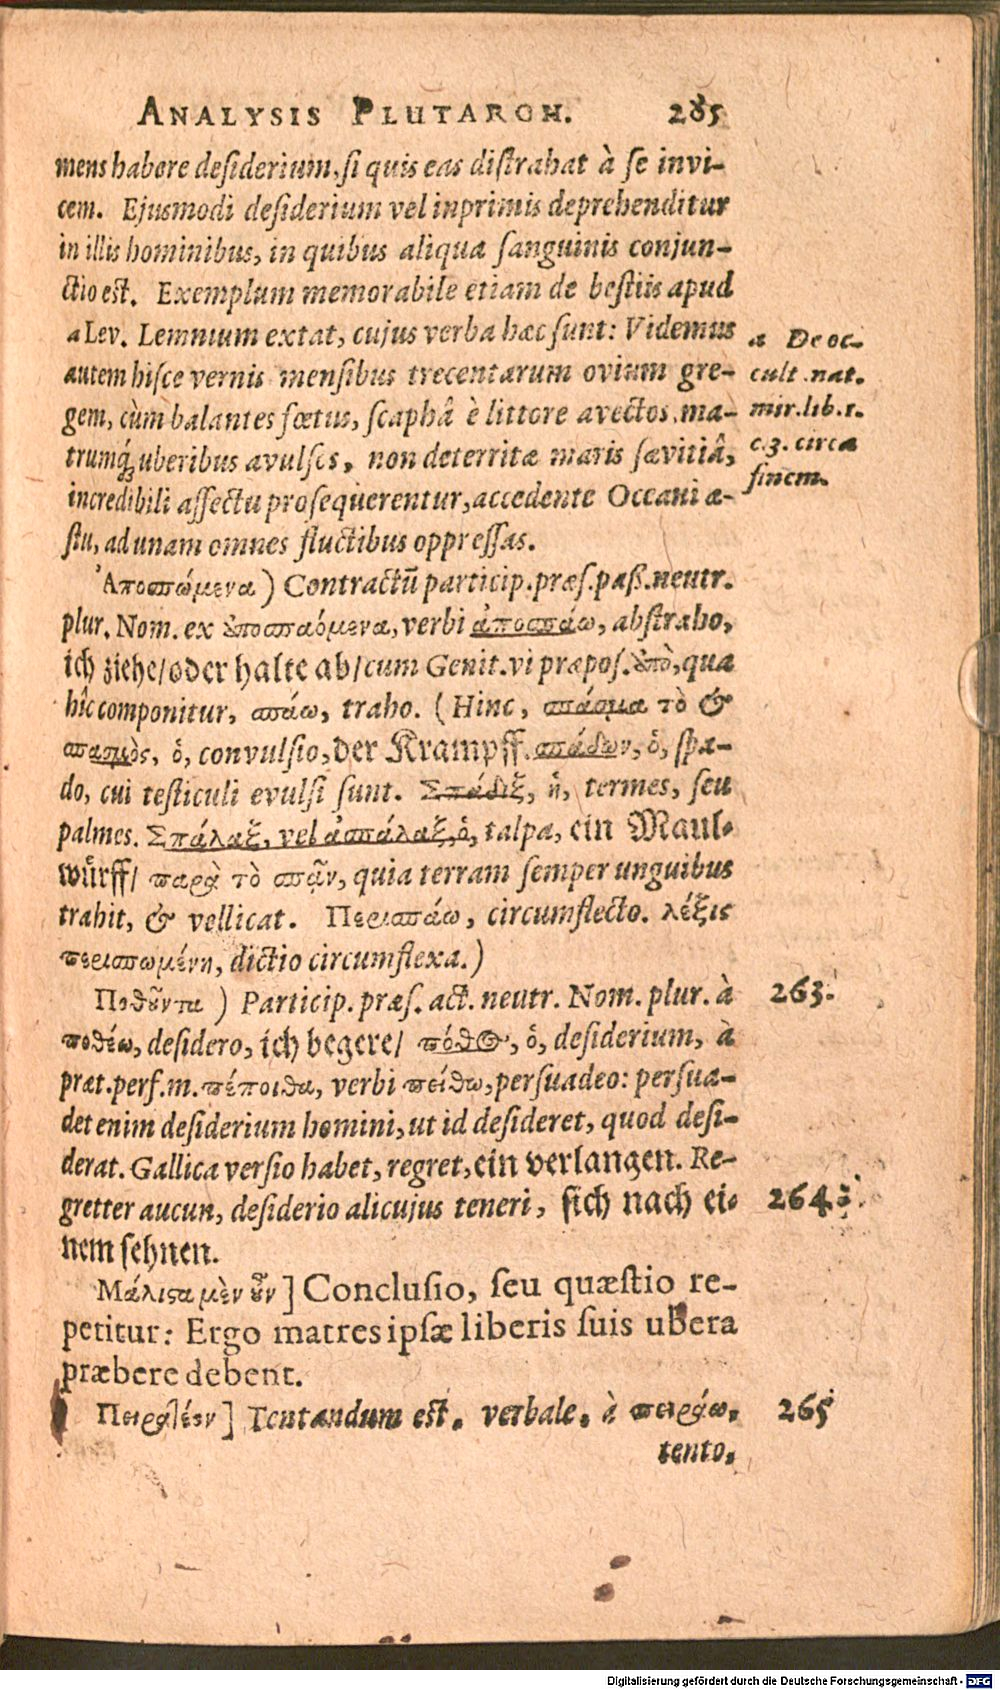 ANALYSIS PLUTARCH. 285
mens habere desiderium, si quis eas distrahat à se invi-
cem. Ejusmodi desiderium vel inprimis deprehenditur
in illis hominibus, in quibus aliqua sanguinis conjun-
ctio est. Exemplum memorabile etiam de bestiis apud
a Lev. Lemnium extat, cujus verba hæc sunt: Videmus
autem hisce vernis mensibus trecentarum ovium gre-
gem, cùm balantes fœtus, scaphâ è littore avectos, ma-
trumq́; uberibus avulsos, non deterritæ maris sævitiâ,
incredibili affectu prosequerentur, accedente Oceani æ-
stu, ad unam omnes fluctibus oppressas.
a De oc-
cult. nat.
mir. lib. 1.
c. 3. circa
finem.
Ἀποσπώμενα) Contractũ particip. præs. pass. neutr.
plur. Nom. ex ἀποσπαόμενα, verbi ἀποσπάω, abstraho,
ich ziehe/ oder halte ab/ cum Genit. vi præpos. ἀπὸ, qua
hîc componitur, σπάω, traho. (Hinc, σπάσμα τὸ &
σπασμὸς, ὁ, convulsio, der Krampff. σπάδων, ὁ, spa-
do, cui testiculi evulsi sunt. Σπάδιξ, ἡ, termes, seu
palmes. Σπάλαξ, vel ἀσπάλαξ, ὁ, talpa, ein Maul-
wůrff/ παρὰ τὸ σπᾷν, quia terram semper unguibus
trahit, & vellicat. Περισπάω, circumflecto. λέξις
περισπωμένη, dictio circumflexa.)
Ποθοῦντα) Particip. præs. act. neutr. Nom. plur. à 263.
ποθέω, desidero, ich begere/ πόθος, ὁ, desiderium, à
præt. perf. m. πέποιθα, verbi πείθω, persuadeo: persua-
det enim desiderium homini, ut id desideret, quod desi-
derat. Gallica versio habet, regret, ein verlangen. Re-
gretter aucun, desiderio alicujus teneri, sich nach ei- 264.
nem sehnen.
Μάλιϛα μὲν οὖν] Conclusio, seu quæstio re-
petitur: Ergo matres ipsæ liberis suis ubera
præbere debent.
Πειρατέον] Tentandum est, verbale, à πειράω, 265
tento,
Digitalisierung gefördert durch die Deutsche Forschungsgemeinschaft - DFG